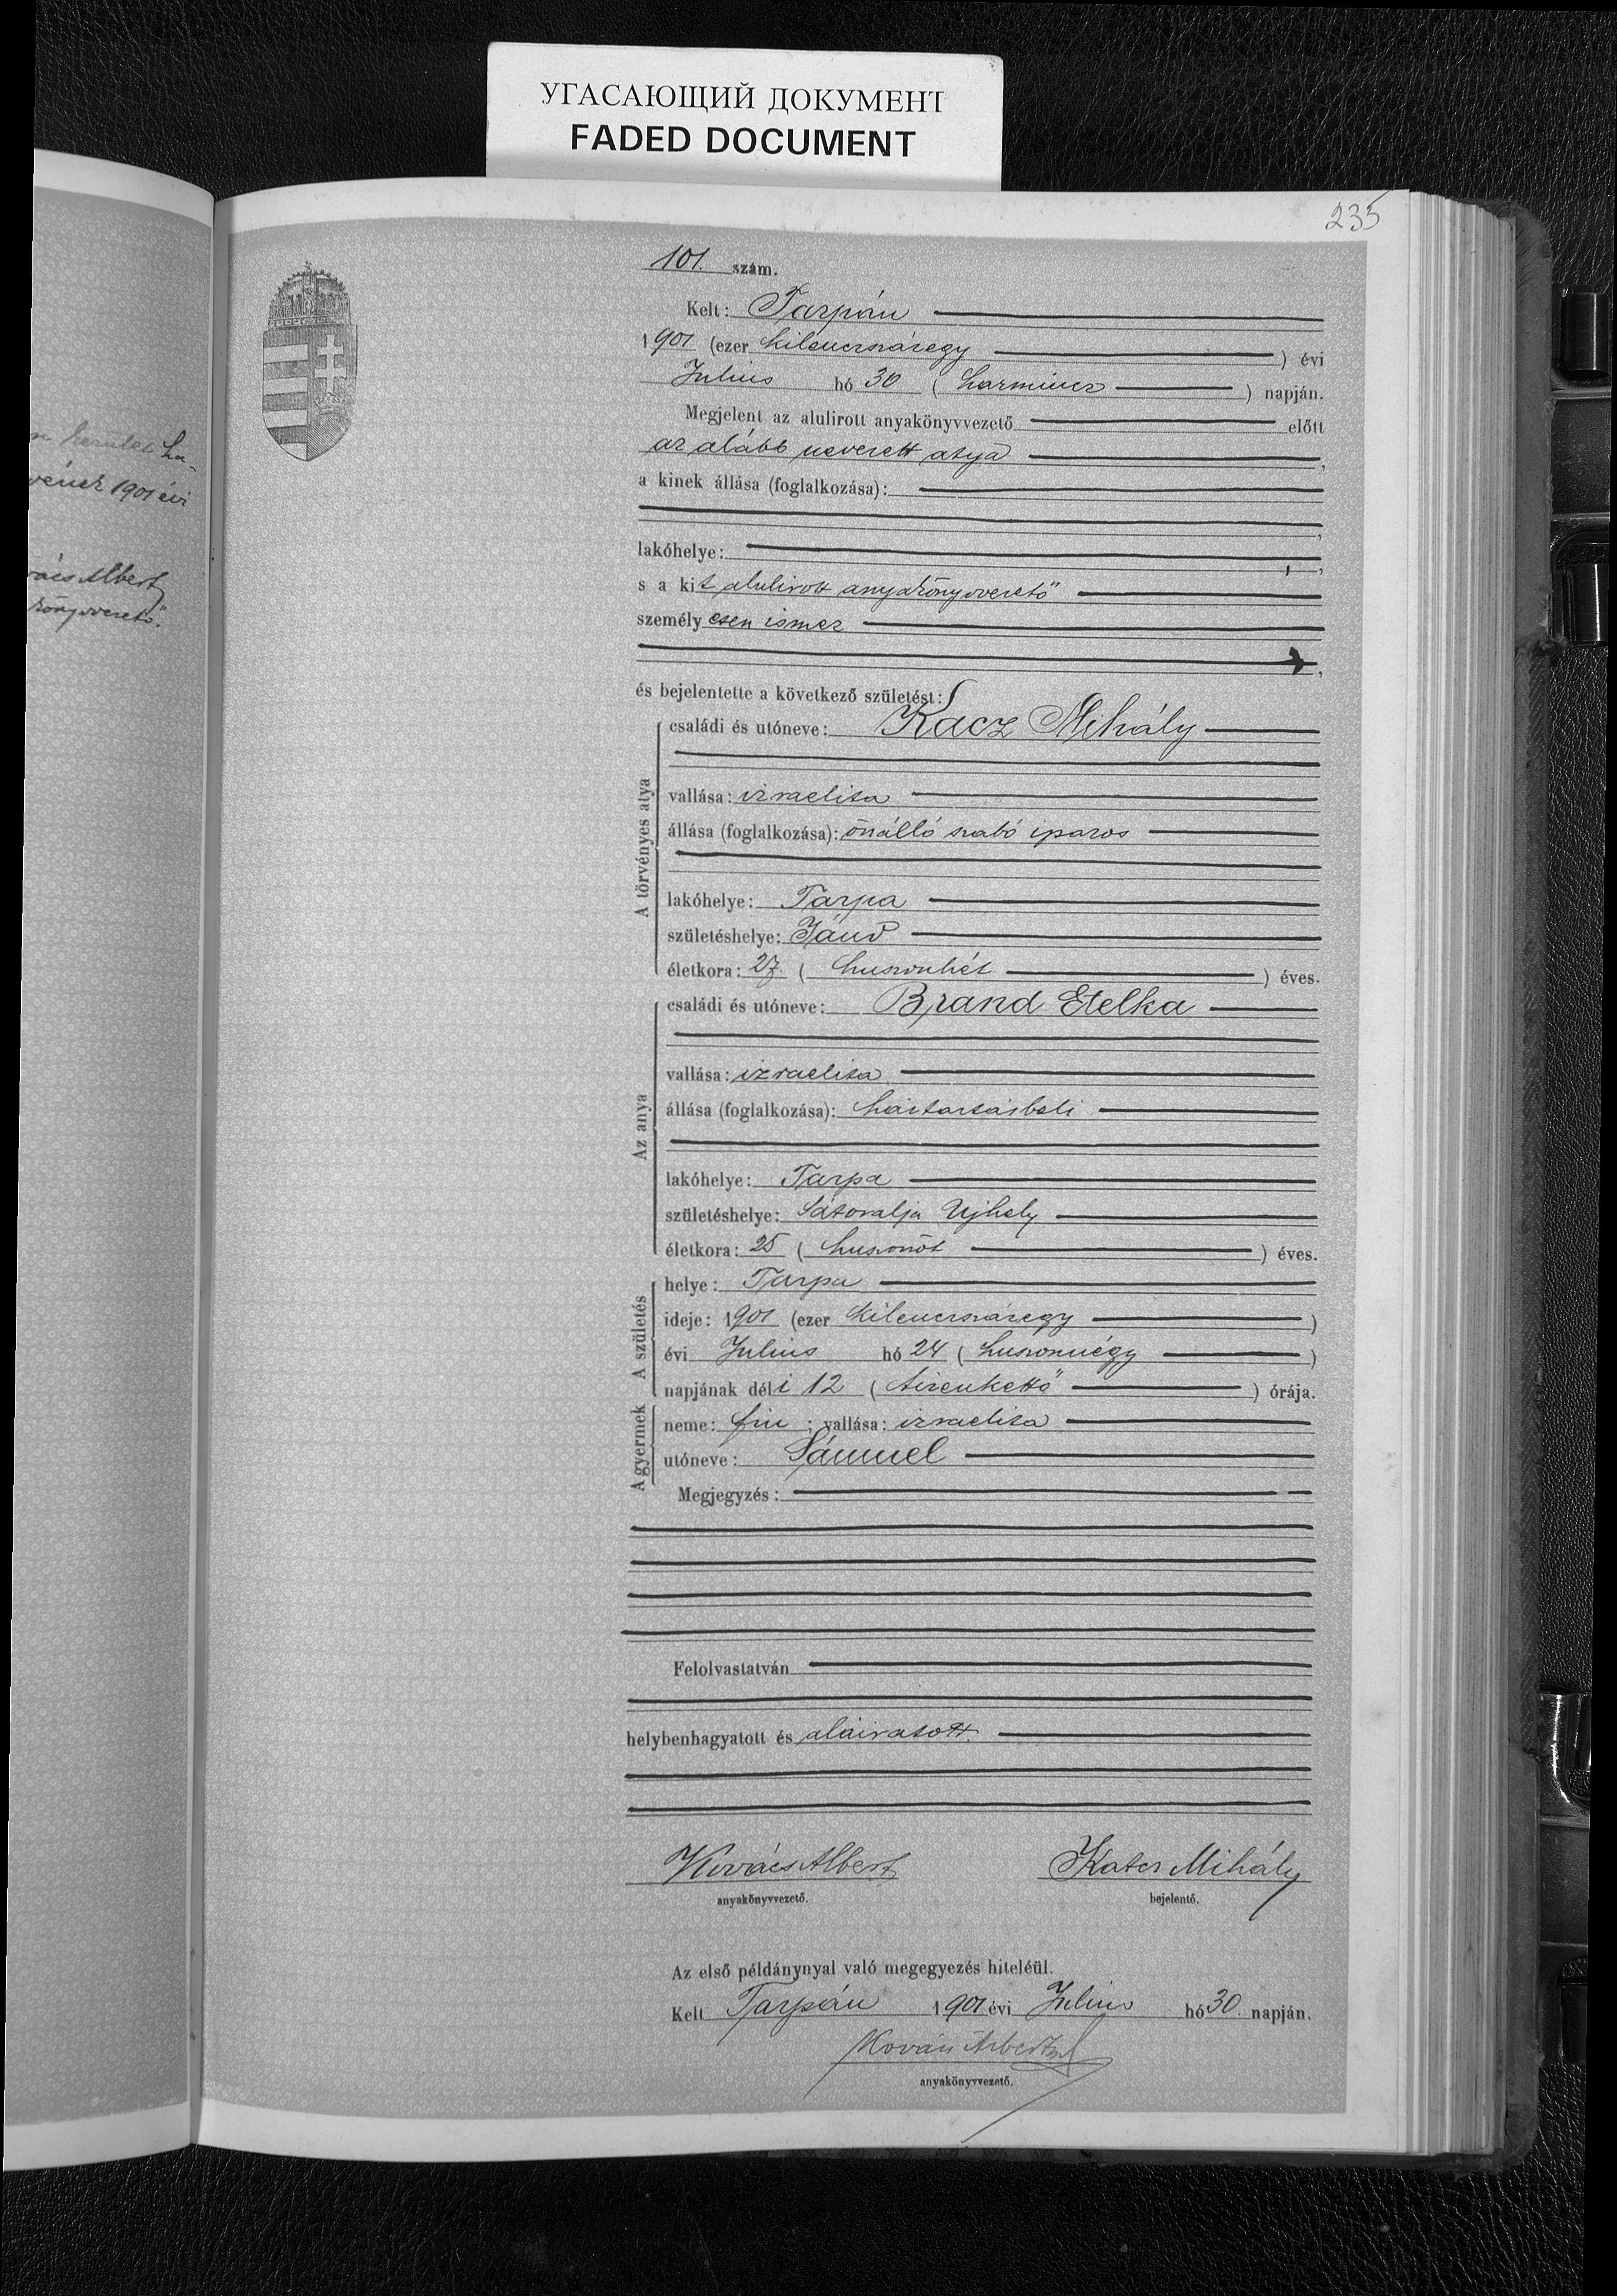 УГАСАЮЩИЙ ДОКУМЕНТ
FADED DOCUMENT
235
101. szám.
Kelt: Tarpán
1901 (ezer kilenczszázegy) évi
Julius hó 30 (harmincz) napján.
Megjelent az alulirott anyakönyvvezető előtt
az alább nevezett atya,
a kinek állása (foglalkozása):
lakóhelye:
s a kit alulirott anyakönyvvezető
személyesen ismer
és bejelentette a következő születést:
A törvényes atya
családi és utóneve: Kacz Mihály
vallása: izraelita
állása (foglalkozása): önálló szabó iparos
lakóhelye: Tarpa
születéshelye: Jánd
életkora: 27. (huszonhét) éves.
Az anya
családi és utóneve: Brand Etelka
vallása: izraelita
állása (foglalkozása): háztartásbeli
lakóhelye: Tarpa
születéshelye: Sátoralja Ujhely
életkora: 25 (huszonöt) éves.
A születés
helye: Tarpa
ideje: 1901 (ezer kilenczszázegy)
évi Julius hó 24 (huszonnégy)
napjának déli 12 (tizenkettő) órája.
A gyermek
neme: fiu; vallása: izraelita
utóneve: Sámuel
Megjegyzés:
Felolvastatván
helybenhagyatott és aláiratott.
Kovács Albert
anyakönyvvezető.
Katcz Mihály
bejelentő.
Az első példánynyal való megegyezés hiteléül.
Kelt Tarpán 1901 évi Julius hó 30. napján.
Kovács Albert
anyakönyvvezető.
1901 évi